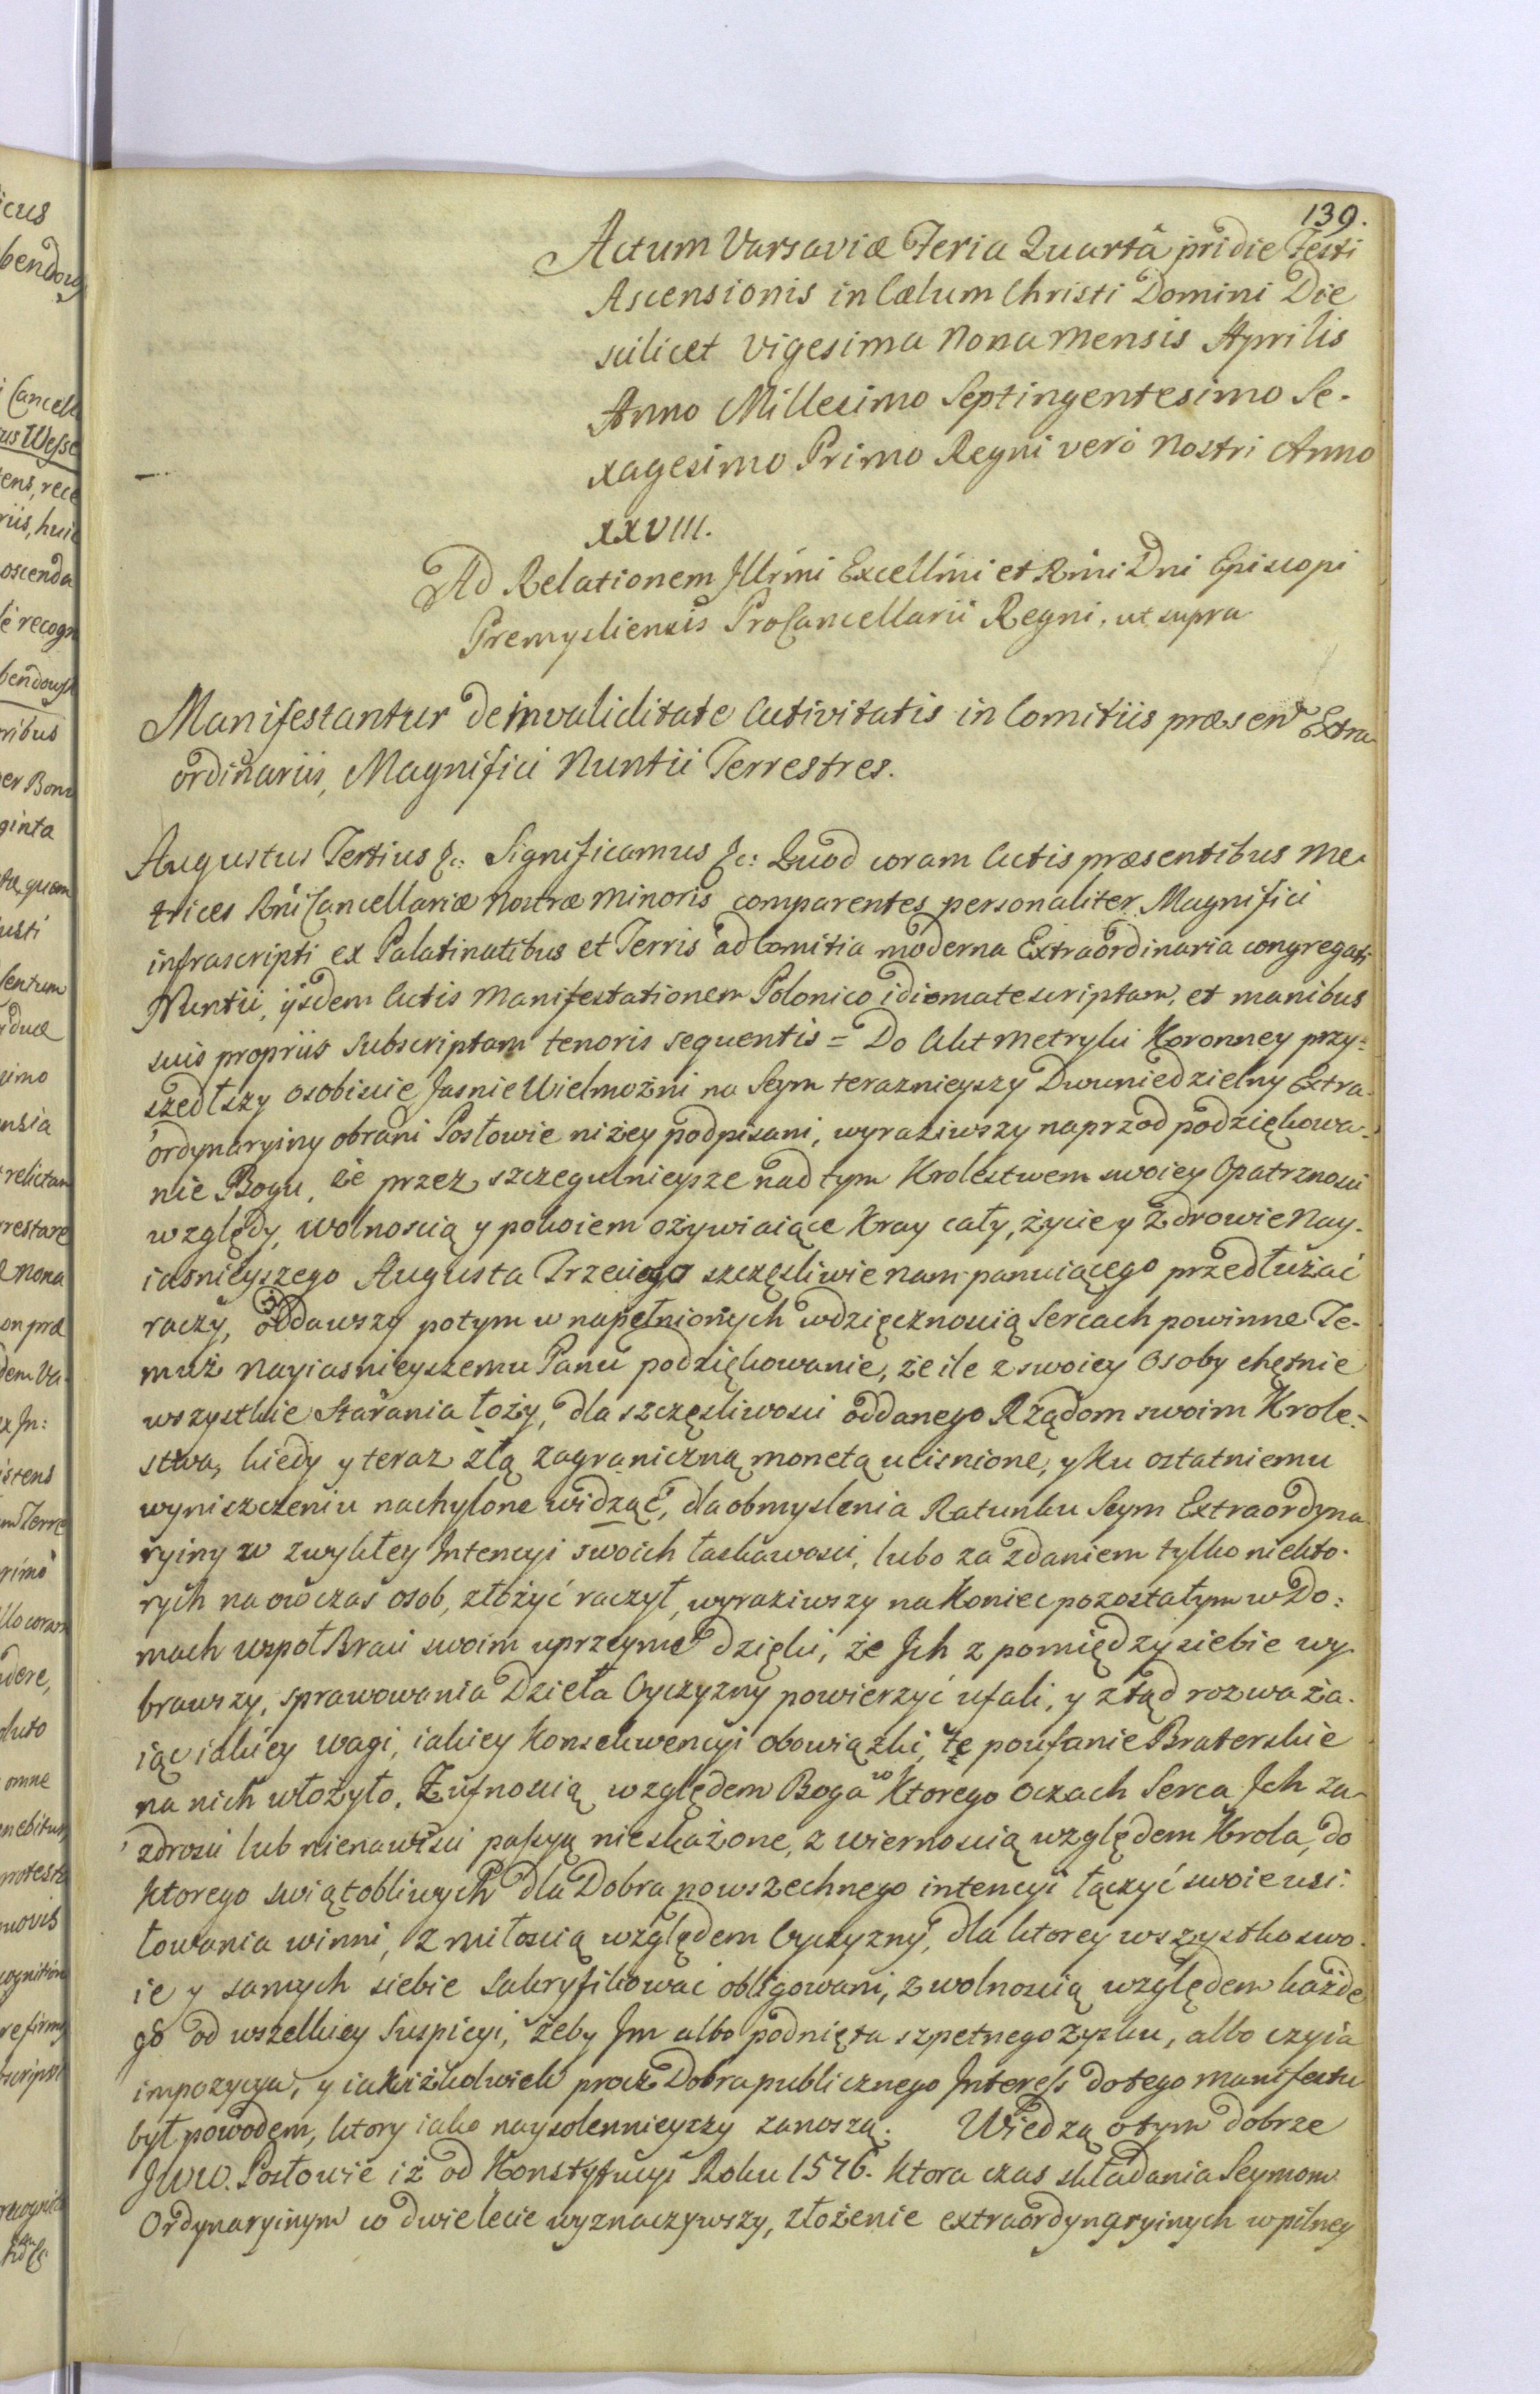 139.
Actum Varsaviæ Feria Quartâ pridie Festi
Ascensionis in Cælum Christi Domini Die
scilicet vigesima nona mensis Aprilis
Anno Millesimo Septingentesimo Se-
xagesimo Primo Regni verò nostri Anno
XXVIII.
Ad Relationem Illrmi Excellmi et Rmi Dni Episcopi
Premysliensis ProCancellarii Regni, ut supra
Manifestantur de invaliditate Activitatis in Comitiis præsent Extra
ordinariis, Magnifici Nuntii Terrestres.
Augustus Tertius &c: Significamus &c: Quod coram Actis præsentibus Me-
trices Rni Cancellariæ nostræ minoris comparentes personaliter Magnifici
infrascripti ex Palatinatibus et Terris ad Comitia moderna Extraordinaria congregati
Nuntii, ijsdem Actis Manifestationem Polonico idiomate scriptam, et manibus
suis propriis subscriptam tenoris sequentis = Do Akt Metryki Koronney przy-
szedłszy osobiscie Jasnie Wielmożni na Seym teraznieyszy Dwuniedzielny Extra-
ordynaryiny obrani Posłowie niżey podpisani, wyraziwszy naprzod podziękowa-
nie Bogu, że przez szczegulnieysze nad tym Krolestwem swoiey Opatrznosci
względy, wolnoscią y pokoiem ożywiaiące Kray cały, życie y Zdrowie Nay-
iasnieyszego Augusta Trzeciego szczęsliwie nam panuiącego przedłużać
raczy, oddawszy potym w napełnionych wdzięcznoscią Sercach powinne Te-
muż Nayiasnieyszemu Panu podziękowanie, że ile z swoiey Osoby chętnie
wszystkie Starania łoży, dla szczęsliwosci oddanego Rządom swoim Krole-
stwa, kiedy y teraz złą zagraniczną monetą ucisnione, y ku ostatniemu
wyniszczeniu nachylone widząc, dla obmyslenia Ratunku Seym Extraordyna
ryiny w zwykłey Intencyi swoich łaskawosci, lubo za zdaniem tylko niekto-
rych na owczas osob, złożyć raczył, wyraziwszy na Koniec pozostałym w Do-
mach wspoł Braci swoim uprzeyme dzięki, że Jch z pomiędzy siebie wy-
brawszy, sprawowania Dzieła Oyczyzny powierzyć ufali, y ztąd rozważa-
iąc iakiey wagi, iakiey Konsekwencyi obowiązki, te poufanie Braterskie
na nich włożyło. Z ufnoscią względem Boga w Ktorego Oczach Serca Jch za-
zdrosci lub nienawisci passyą nieskażone, z wiernoscią względem Krola, do
Ktorego swiątobliwych dla Dobra powszechnego intencyi łączyć swoie usi-
łowania winni, z miłoscią względem Oyczyzny, dla ktorey wszystko swo-
ie y samych siebie Sakryfikować obligowani, z wolnoscią względem każde
go od wszelkiey Suspicyi, żeby Jm albo podnięta szpetnego zysku, albo czyia
impozycya, y iakiżkolwiek procz Dobra publicznego Interess do tego manifestu
był powodem, ktory iako naysolennieyszy zanoszą. Wiedzą o tym dobrze
JWW. Posłowie iż od Konstytucyi Roku 1576. Ktora czas składania Seymom
Ordynaryinym co dwie lecie wyznaczywszy, złożenie extraordynaryinych w pilney